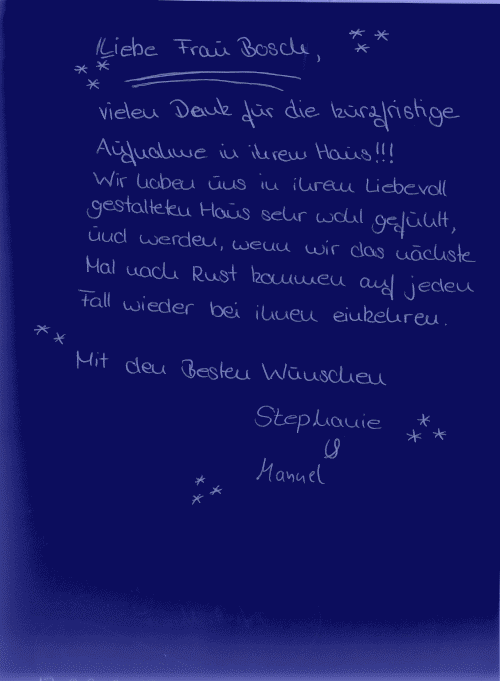 Liebe Frau Bosch,
vielen Dank für die kurzfristige
Aufnahme in ihrem Haus!!!
Wir haben uns in ihrem Liebevoll
gestalteten Haus sehr wohl gefühlt,
und werden, wenn wir das nächste
Mal nach Rust kommen auf jeden
Fall wieder bei ihnen einkehren.
Mit den Besten Wünschen
Stephanie
&
Manuel